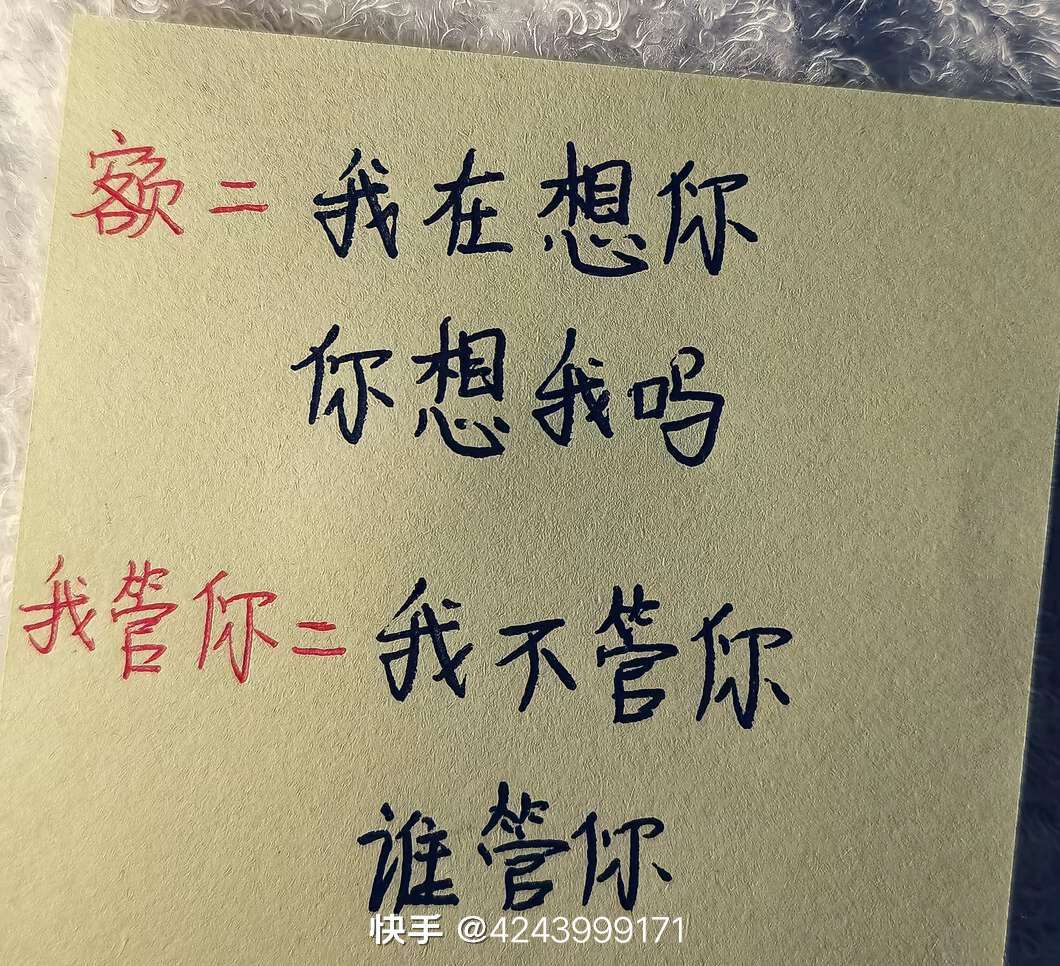 额=我在想你
你想我吗
我管你=我不管你
谁管你
快手 @4243999171